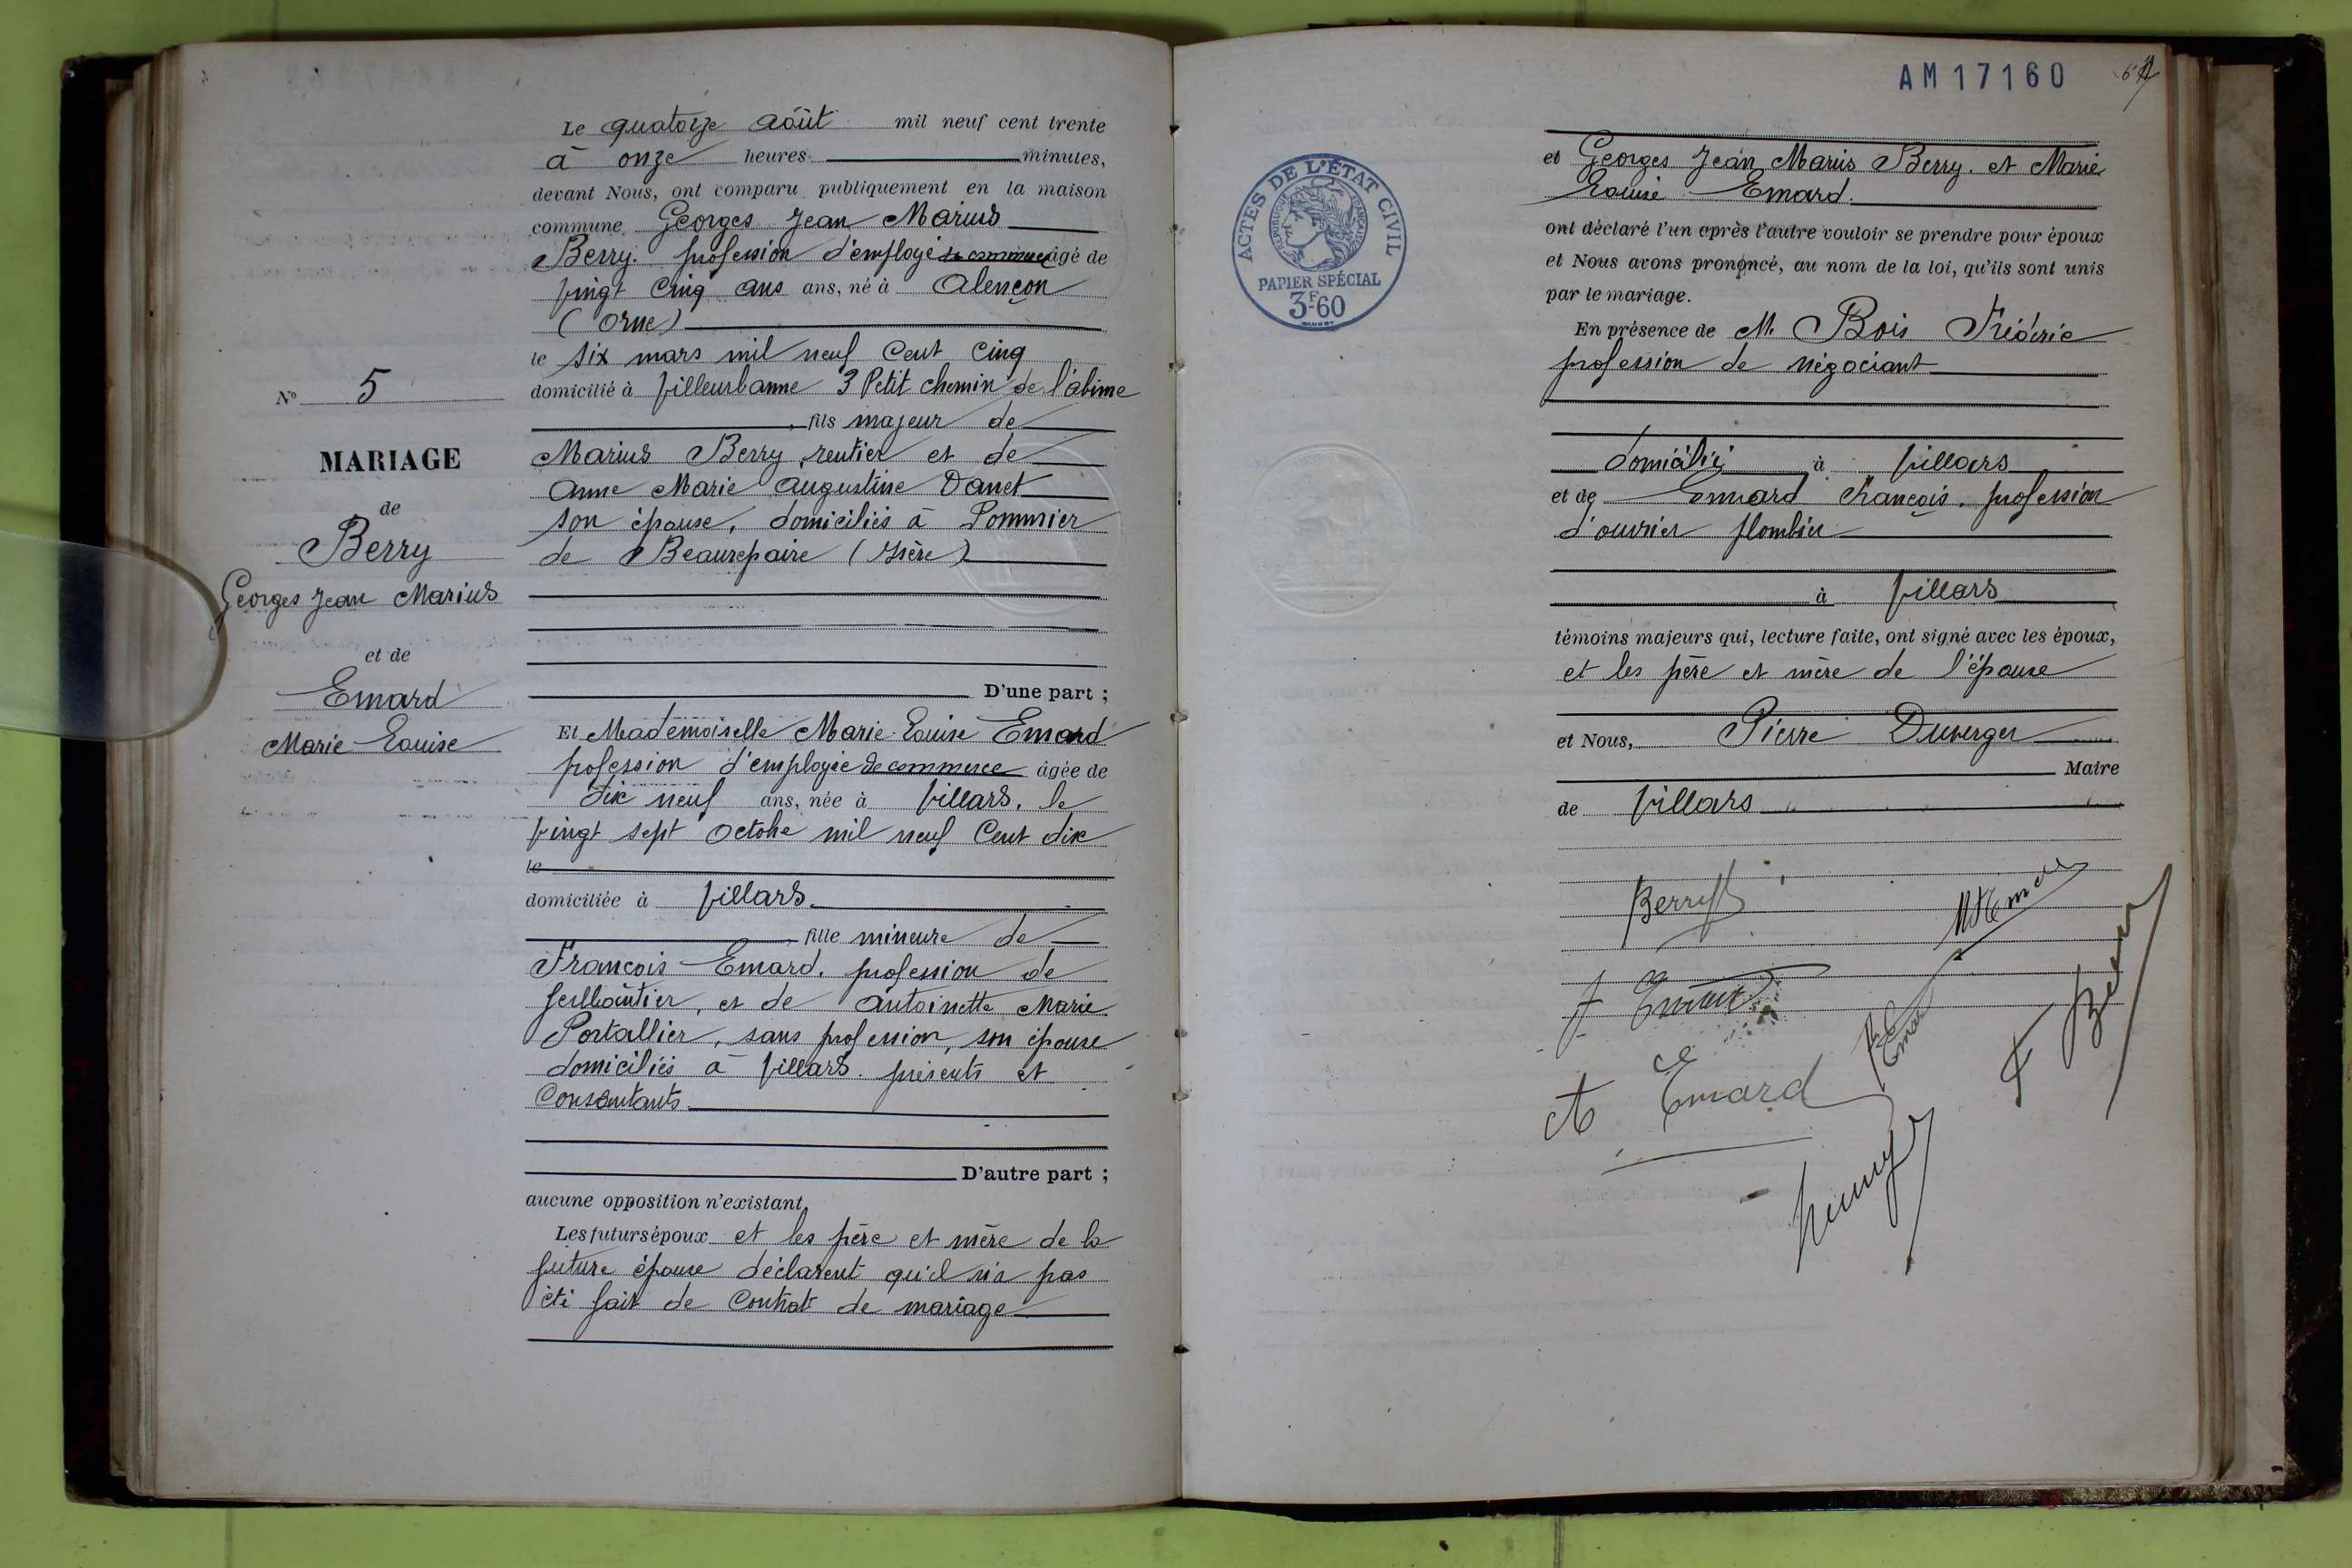 Le quatorze août mil neuf cent trente
à onze heures minutes,
devant Nous, ont comparu publiquement en la maison
commune Georges Jean Marius
Berry. profession d'employé de commerce âgé de
vingt cinq ans ans, né à Alençon
(Orne)
le six mars mil neuf cent cinq
domicilié à Villeurbanne 3 Petit chemin de l'abime
, fils majeur de
Marius Berry, rentier et de
Anne Marie Augustine Danet
son épouse, domiciliés à Pommier
de Beaurepaire (Isère)
D'une part ;
Et Mademoiselle Marie Louise Emard
profession d'employée de commerce âgée de
dix neuf ans, née à Villars, le
vingt sept octobre mil neuf cent dix
le
domiciliée à Villars.
, fille mineure de
François Emard, profession de
ferblantier, et de Antoinette Marie
Portallier, sans profession, son épouse
domiciliés à Villars. présents et
consentants.
D'autre part ;
aucune opposition n'existant,
Les futurs époux et les père et mère de la
future épouse déclarent qu'il n'a pas
été fait de contrat de mariage
N° 5
MARIAGE
de
Berry
Georges Jean Marius
et de
Emard
Marie Louise
AM17160
ACTES DE L'ÉTAT CIVIL
RÉPUBLIQUE FRANÇAISE
PAPIER SPÉCIAL
3F60
et Georges Jean Marius Berry. et Marie
Louise Emard.
ont déclaré l'un après l'autre vouloir se prendre pour époux
et Nous avons prononcé, au nom de la loi, qu'ils sont unis
par le mariage.
En présence de M. Bois Frédéric
profession de négociant
domicilié à Villars
et de Emard François. profession
d'ouvrier plombier
à Villars
témoins majeurs qui, lecture faite, ont signé avec les époux,
et les père et mère de l'épouse
et Nous, Pierre Duverger
Maire
de Villars
Berry
F Emard
A Emard